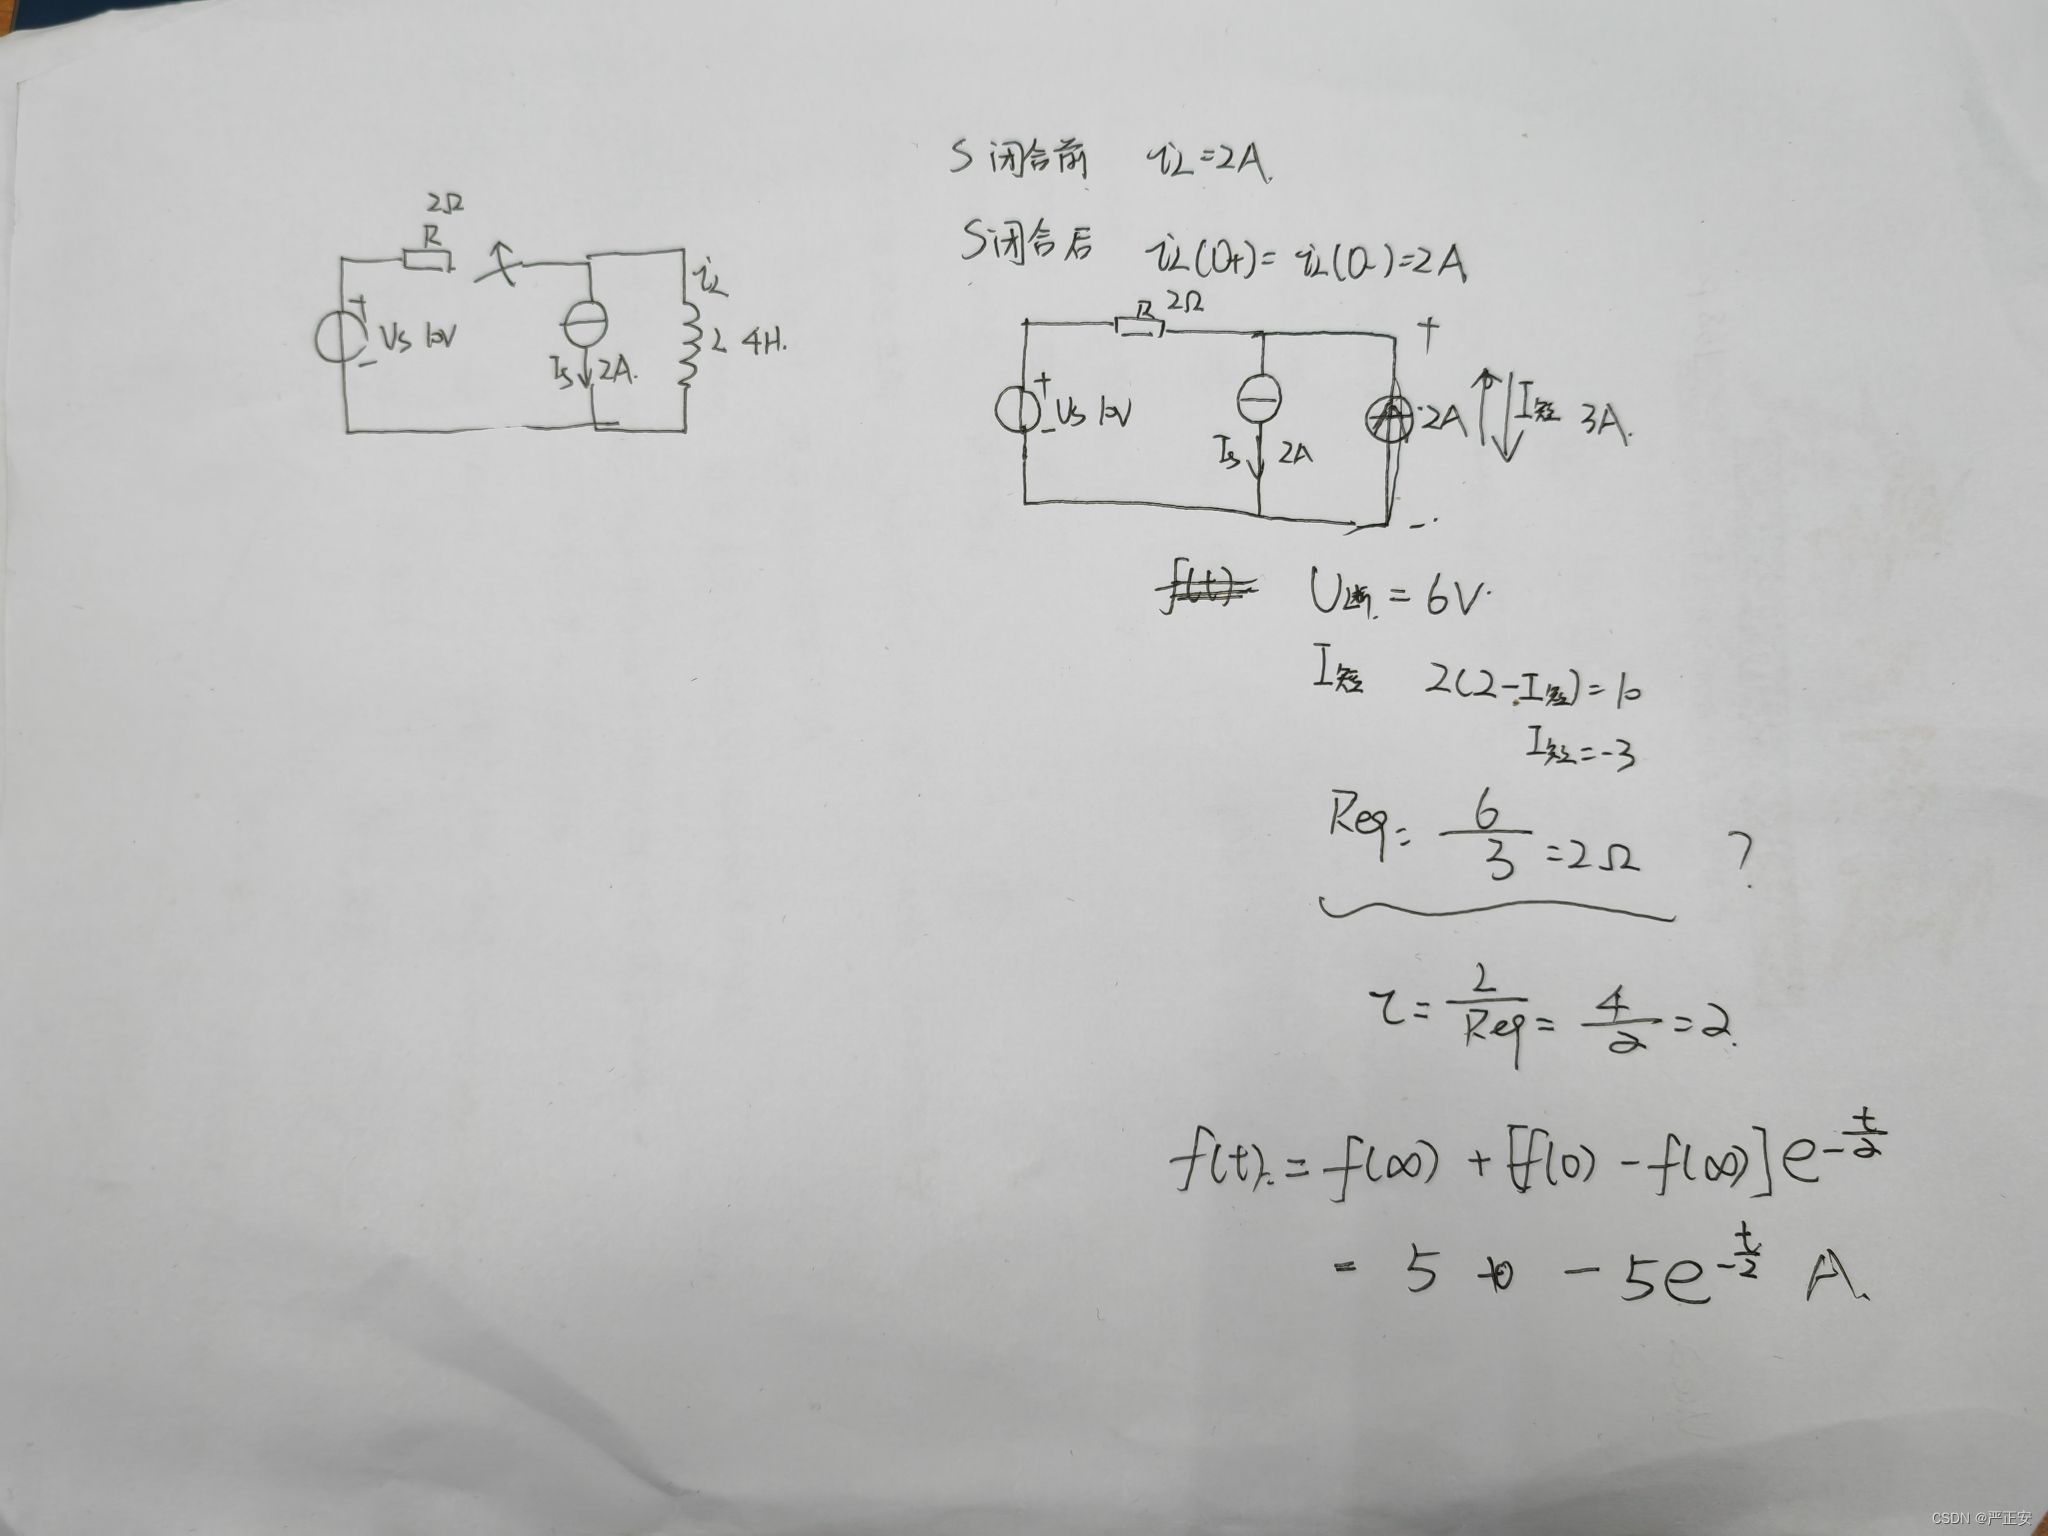 2Ω
R
iL
+
Vs 10V
-
Is 2A.
L 4H.
S 闭合前 iL=2A.
S闭合后 iL(0+)= iL(0-)=2A
R 2Ω
+
+
Vs 10V
-
Is 2A
2A
I短 3A.
-
f(t) U断. = 6V.
I短 2(2-I短)=10
I短=-3
Req= 6/3 =2Ω ?
τ= L/Req = 4/2 =2.
f(t).= f(∞) + [f(0) - f(∞)] e^-t/2
= 5 - 5e^-t/2 A.
CSDN @严正安